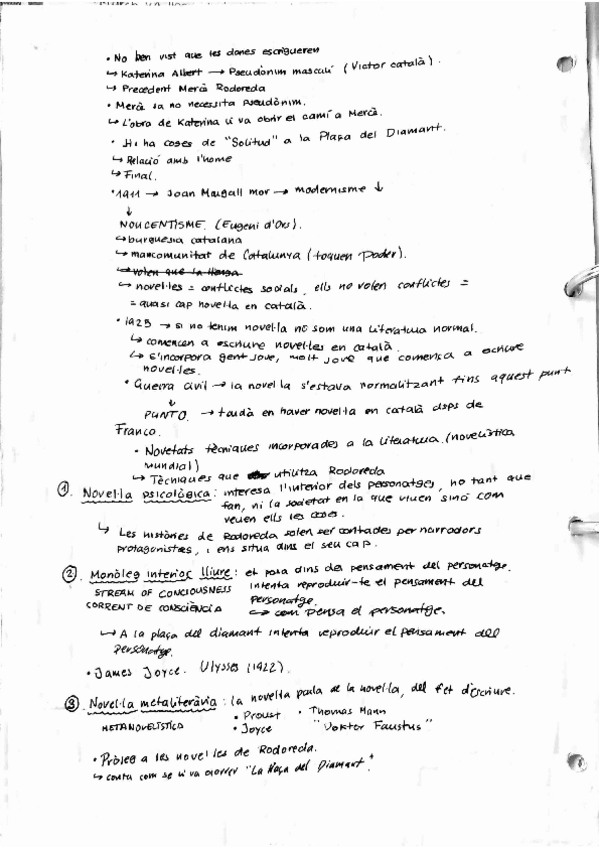 • No ben vist que les dones escrigueren
↳ Katerina Albert → Pseudònim masculí (Victor català).
↳ Precedent Mercè Rodoreda
• Mercè ja no necessita Pseudònim.
↳ L'obra de Katerina li va obrir el camí a Mercè.
• Hi ha coses de "Solitud" a la Plaça del Diamant.
↳ Relació amb l'home
↳ Final.
• 1911 → Joan Maragall mor → modernisme ↓
↓
NOUCENTISME. (Eugeni d'Ors).
↳ burguesia catalana
↳ mancomunitat de Catalunya (toquen poder).
↳ volen que la llengua
↳ novel·les = conflictes socials, ells no volen conflictes =
= quasi cap novel·la en català.
• 1925 → si no tenim novel·la no som una literatura normal.
↳ comencen a escriure novel·les en català.
↳ S'incorpora gent jove, molt jove que comença a escriure
novel·les.
• Guerra civil → la novel·la s'estava normalitzant fins aquest punt
↓
PUNTO. → tardà en haver novel·la en català dsps de
Franco.
• Novetats tècniques incorporades a la literatura (novel·lística
mundial)
↳ Tècniques que utilitza Rodoreda
① Novel·la psicològica: interesa l'interior dels personatges, no tant que
fan, ni la societat en la que viuen sinó com
veuen ells les coses.
↳ Les històries de Rodoreda solen ser contades per narradors
protagonistes, i ens situa dins el seu cap.
② Monòleg interior lliure: et posa dins del pensament del personatge.
STREAM OF CONCIOUSNESS intenta reproduir-te el pensament del
personatge.
CORRENT DE CONSCIÈNCIA ↳ com pensa el personatge.
↳ A la plaça del diamant intenta reproduir el pensament del
personatge.
• James Joyce. Ulysses (1922).
③ Novel·la metaliterària: la novel·la parla de la novel·la, del fet d'escriure.
METANOVELÍSTICA • Proust • Thomas Mann
• Joyce "Doktor Faustus"
• Pròleg a les novel·les de Rodoreda.
↳ conta com se li va ocórrer "La Plaça del Diamant"